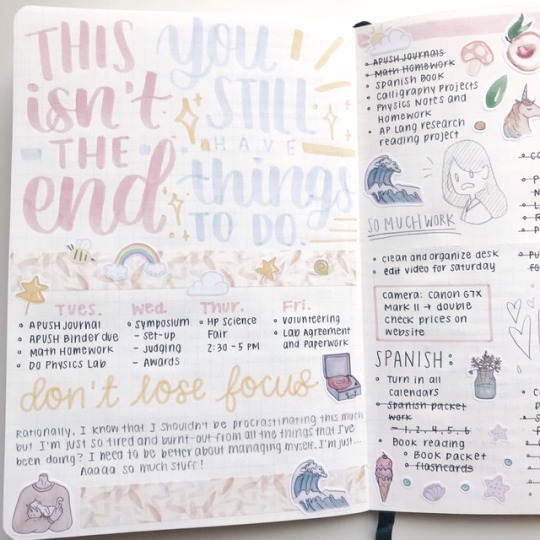 THIS
isn't
THE
end
you
STILL
HAVE
things
TO DO.
TUES.
• APUSH Journal
• APUSH Binder due
• Math Homework
• DO Physics Lab
Wed.
• Symposium
- set-up
- Judging
- Awards
Thur.
• HP Science
Fair
2:30 - 5 PM
Fri.
• Volunteering
• Lab Agreement
and Paperwork
don't lose focus
Rationally, I know that I shouldn't be procrastinating this much
but I'm just so tired and burnt-out from all the things that I've
been doing? I need to be better about managing myself. I'm just...
Aaaaa so much stuff!
• APUSH Journals
• Math Homework
• Spanish Book
• Calligraphy Projects
• Physics Notes and
Homework
• AP Lang research
reading project
SO MUCH WORK
• clean and organize desk
• edit video for saturday
Camera: Canon G7X
Mark II → double
check prices on
website
SPANISH:
• Turn in all
calendars
• Spanish packet
work
- 1, 2, 4, 5, 6
• Book reading
• Book packet
• flashcards